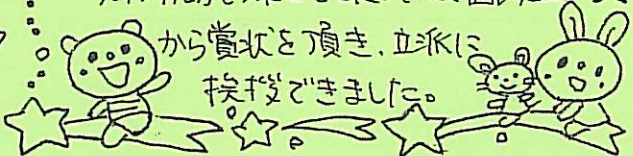 から賞状を頂き、立派に
挨拶できました。